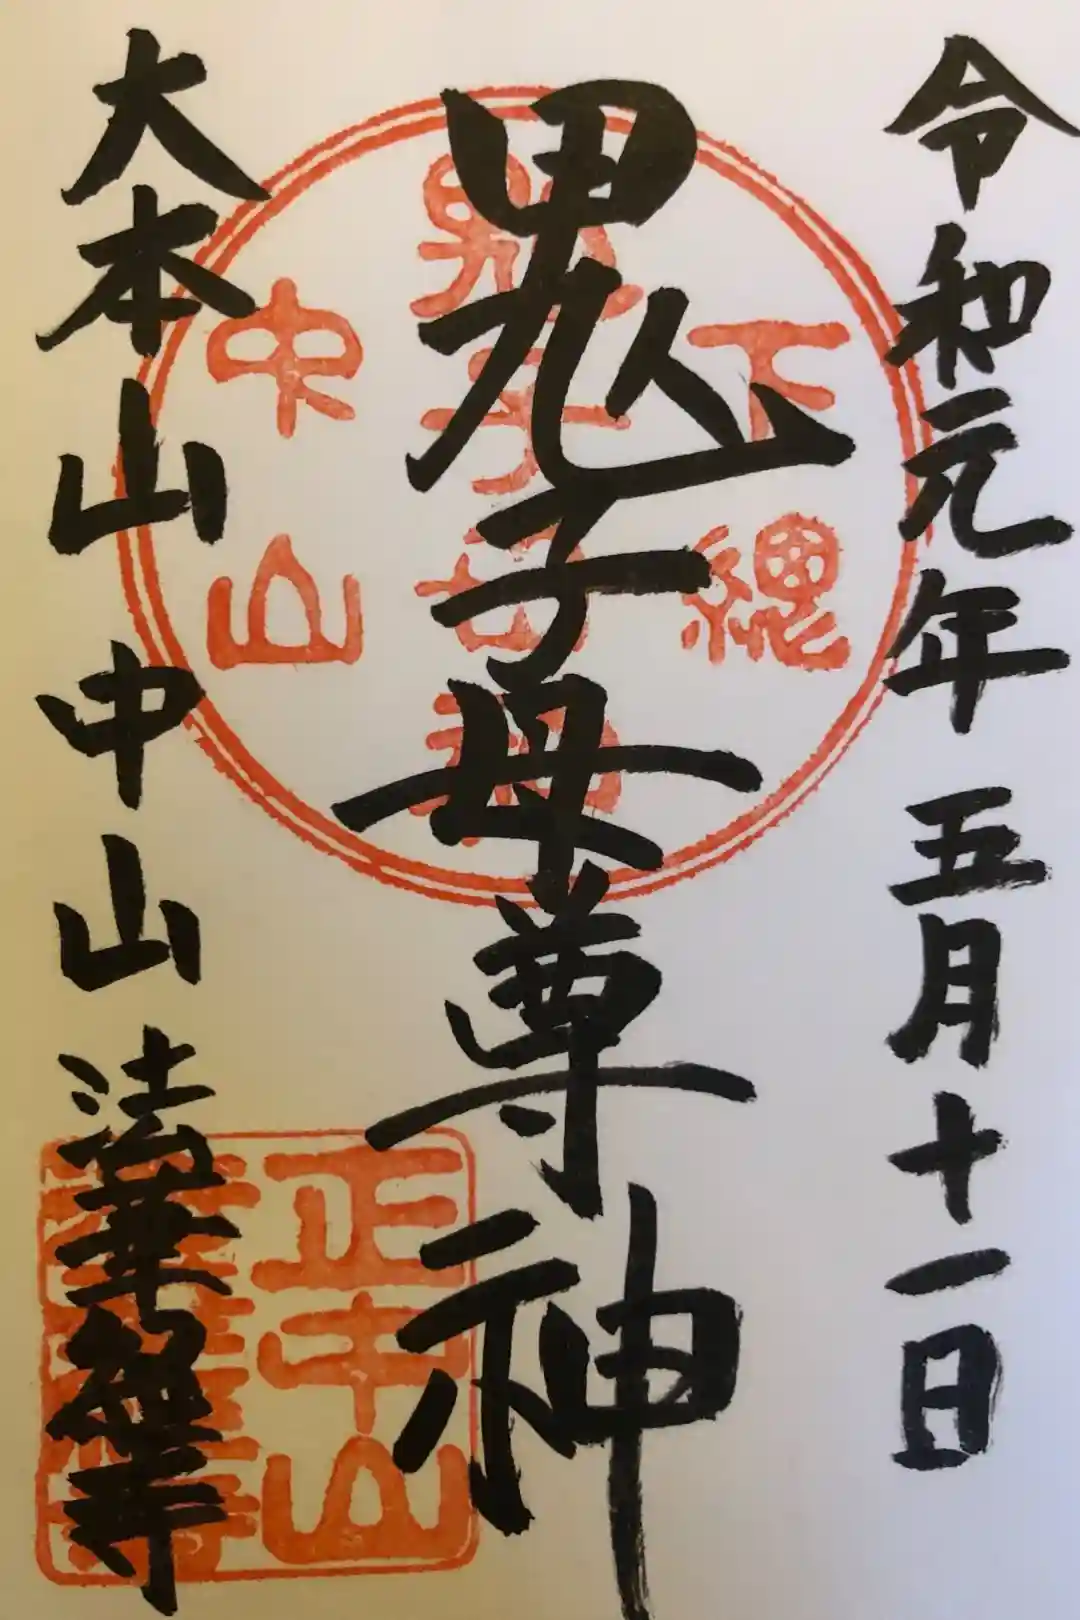 令和元年五月十一日
鬼子母尊神
大本山中山法華経寺
下總
鬼子母神
中山
正中山